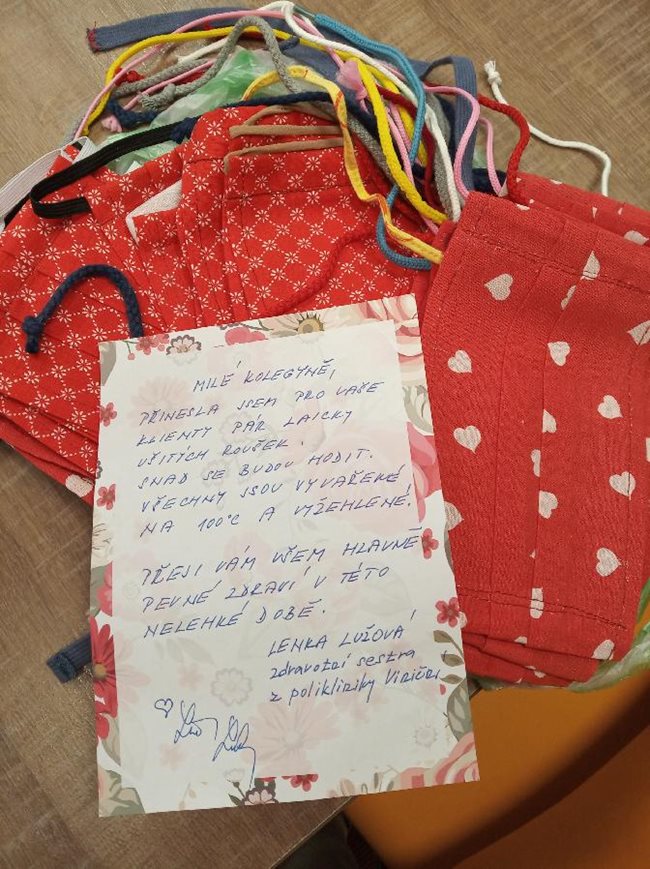 MILÉ KOLEGYNĚ,
PŘINESLA JSEM PRO VAŠE
KLIENTY PÁR LAICKY
UŠITÝCH ROUŠEK.
SNAD SE BUDOU HODIT.
VŠECHNY JSOU VYVAŘENÉ
NA 100°C A VYŽEHLENÉ!
PŘEJI VÁM VŠEM HLAVNĚ
PEVNÉ ZDRAVÍ V TÉTO
NELEHKÉ DOBĚ.
LENKA LUŽOVÁ
zdravotní sestra
z polikliniky